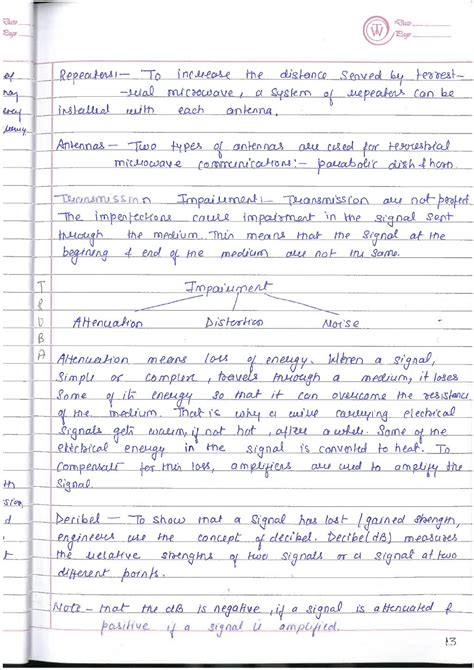 Date
Page
Date
Page
Repeaters:- To increase the distance served by terrest-
-rial microwave, a system of repeaters can be
installed with each antenna.
Antennas - Two types of antennas are used for terrestrial
microwave communications:- parabolic dish & horn.
Transmission Impairment:- Transmission are not perfect
The imperfections cause impairment in the signal sent
through the medium. This means that the signal at the
begening & end of the medium are not the same.
Impairment
Attenuation Distortion Noise
Attenuation means loss of energy. When a signal,
simple or complex, travels through a medium, it loses
some of its energy so that it can overcome the resistance
of the medium. That is why a wire carrying electrical
signals gets warm, if not hot, after a while. Some of the
electrical energy in the signal is converted to heat. To
compensate for this loss, amplifiers are used to amplify the
signal.
Decibel - To show that a signal has lost / gained strength,
engineers use the concept of decibel. Decibel (dB) measures
the relative strengths of two signals or a signal at two
different points.
Note - that the dB is negative, if a signal is attenuated &
positive if a signal is amplified.
13